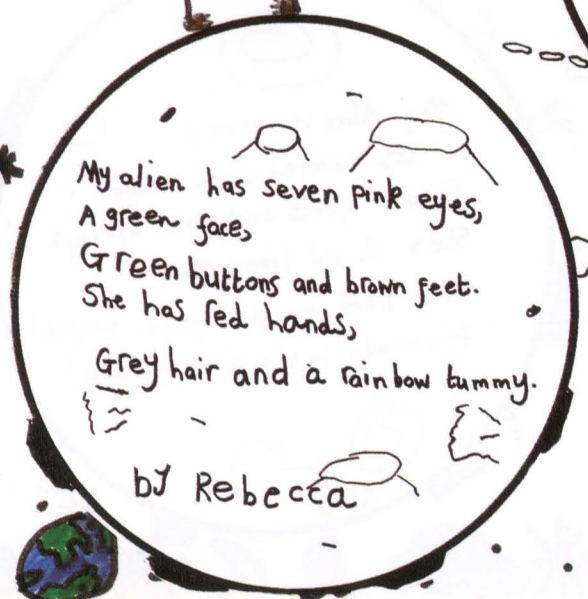 My alien has seven pink eyes,
A green face,
Green buttons and brown feet.
She has red hands,
Grey hair and a rainbow tummy.
by Rebecca